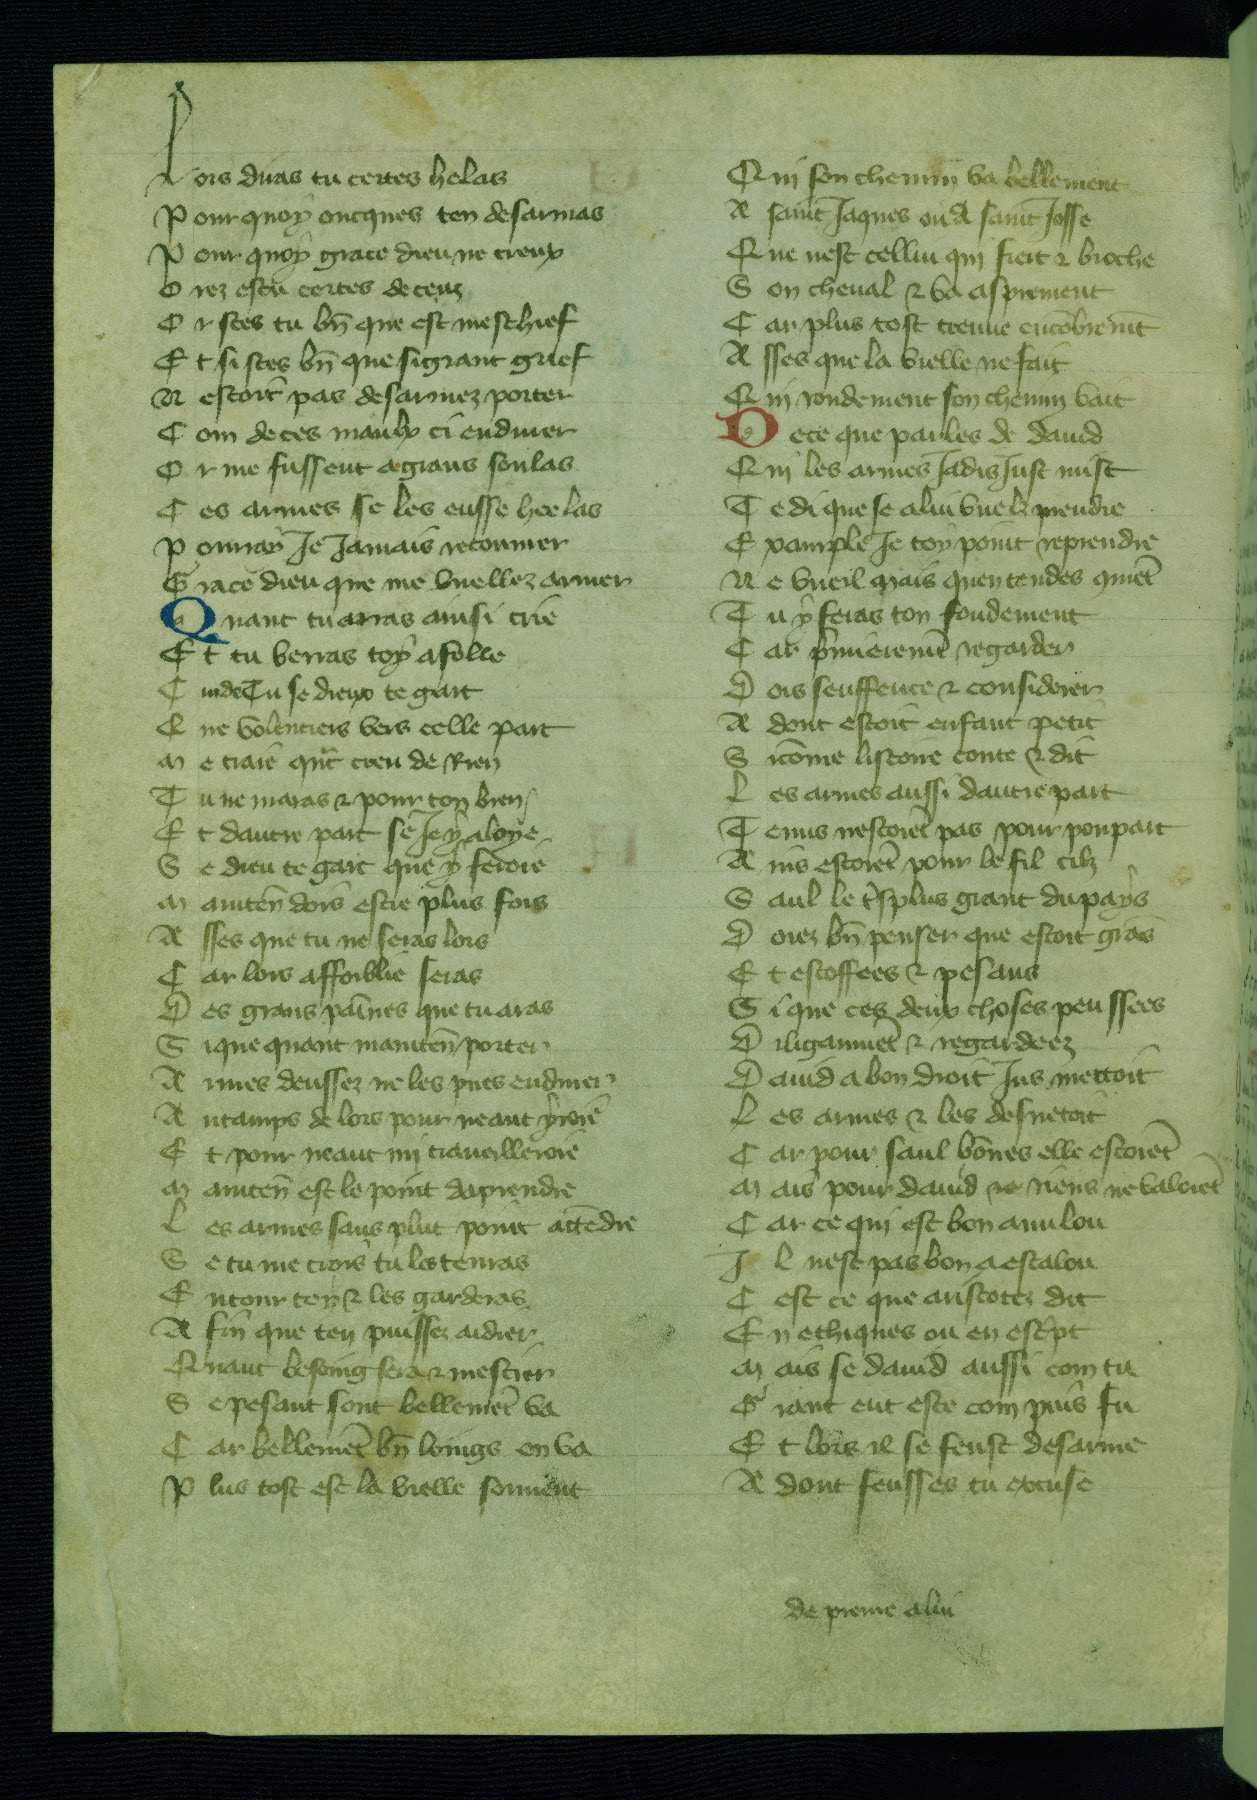 Lors diras tu certes helas
Pour quoy oncques ten desarmas
Pour quoy grace dieu ne creux
Orez estu certes deceuz
Or sces tu bn̄ que est meschief
Et si sces bn̄ que si grant grief
N estoit pas desarmez porter
Com de ces maulx ci endurer
Or me fussent a grans soulas
Ces armes se les eusse heelas
Pourray Je Jamais retourner
Grace dieu que me vuellez armer
Quant tu arras ainsi crie
Et tu verras toy afolle
Cuides Tu se dieux te gart
Que volentiers vers celle part
Me traie qn̄t creu de Rien
Tu ne maras & pour ton bien
Et dautre part se Je y aloye
Se dieu te gart que y feroie
Maintēn dois estre plus fors
Asses que tu ne seras lors
Car lors affoiblie seras
Des grans painnes que tu aras
Sique quant maintēn porter
Armes deussez ne les pues endurer
Autamps de lors pour neant yroiē
Et pour neant mi traveilleroiē
Maintēn est le point daprendre
Les armes sans plut point attēdre
Se tu me crois tu les tenras
Entour toy & les garderas
Afin que ten puissez aidier
Quant besoing sera & mestier
Se pesant sont bellemēt va
Car bellemēt bn̄ loings en va
Plus tost est la vielle souvent
Qui son chemin va bellement
A saint Jaques ou A saint Josse
Que nest cellui qui fiert & broche
Son cheval & va asprement
Car plus tost treuve encōbremt̄
Asses que la vielle ne fait
Qui rondement son chemin vait
De ce que parles de david
Qui les armes Jadis Jus mist
Te di que se a lui vuelz prendre
Example Je toy point reprendre
Ne vueil mais quentendes qmēt
Tu y feras ton fondement
Car p̄mieremt̄ regarder
Dois senffence & considerer
Adont estoit enfant petit
Sicōme listoire conte & dit
Les armes aussi dautre part
Tenus nestoiēt pas pour poupart
Ains estoiēt pour le fil cilz
Saul le t̄splus grant du pays
Doiez bn̄ penser que estoit grās
Et estoffees & pesans
Si que ces deux choses peussees
Diliganmēt & regardeez
David a bon droit Jus mettoit
Les armes & les desvetoit
Car pour saul bōnes elle estoiēt
Mais pour david ne riens ne valoiēt
Car ce qui est bon a milou
Il nest pas bon a escalou
Cest ce que aristotez dit
En ethiques ou en escp̄t
Mais se david aussi com tu
Grant eut este com puis fu
Et lors il se feust desarme
Adont feusses tu excuse
de preme a lui